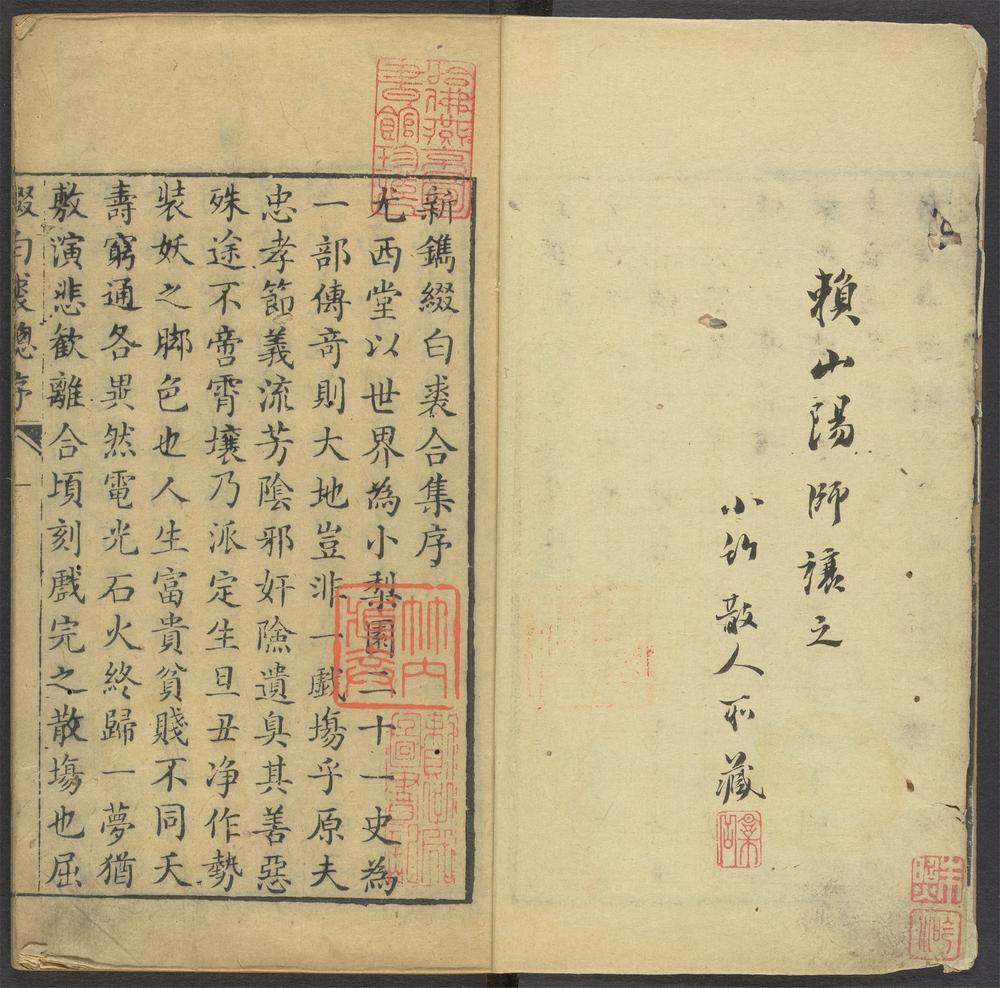 賴山陽師讓之
小竹散人所藏
新鐫綴白裘合集序
尤西堂以世界為小梨園二十一史為
一部傳奇則大地豈非一戲塲乎原夫
忠孝節義流芳陰邪奸險遺臭其善惡
殊途不啻霄壤乃派定生旦丑净作勢
裝妖之脚色也人生富貴貧賤不同夭
壽窮通各異然電光石火終歸一夢猶
敷演悲歡離合頃刻戲完之散塲也屈
綴白裘總序
一
哈佛燕京圖
書館珍藏